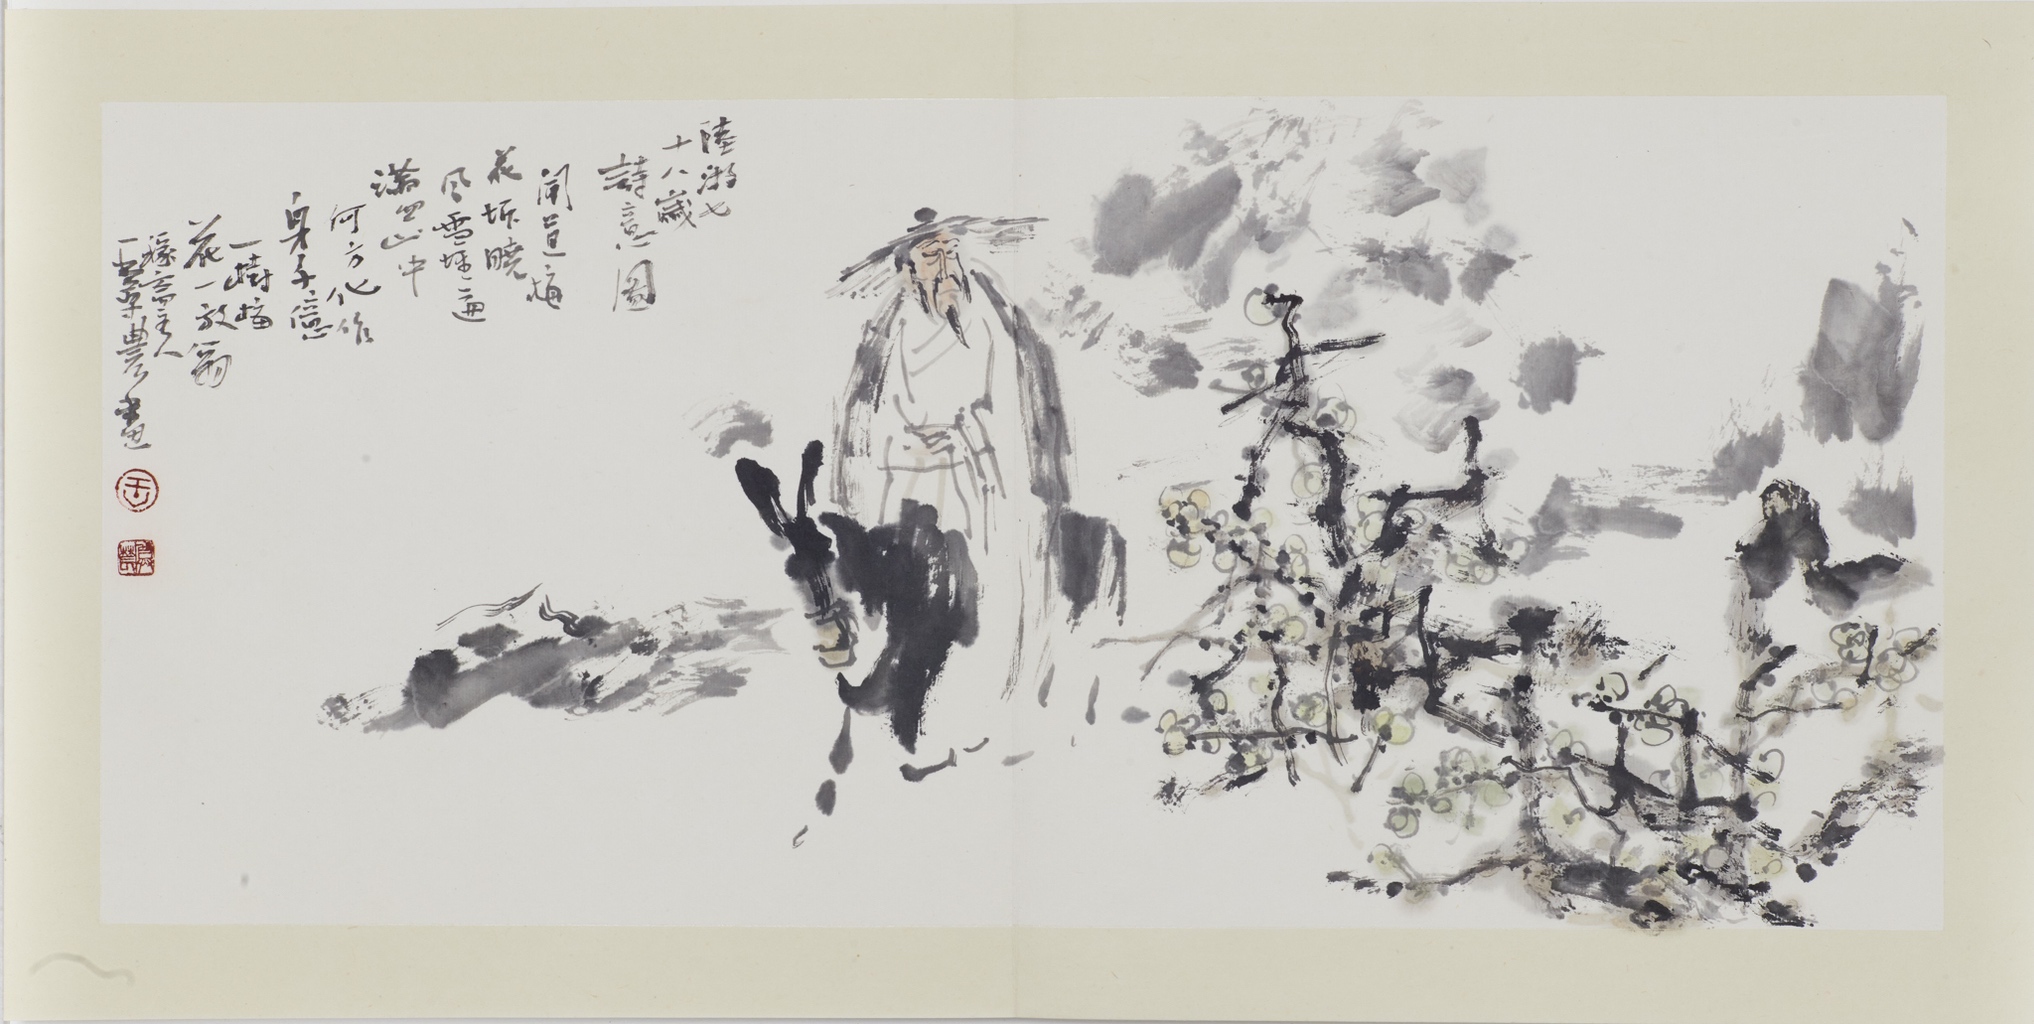 陸游七
十八歲
詩意圖
聞道梅
花坼曉
风雪堆遍
滿四山中
何方化作
身千億
一樹梅
花一放翁
齋主人
農畫